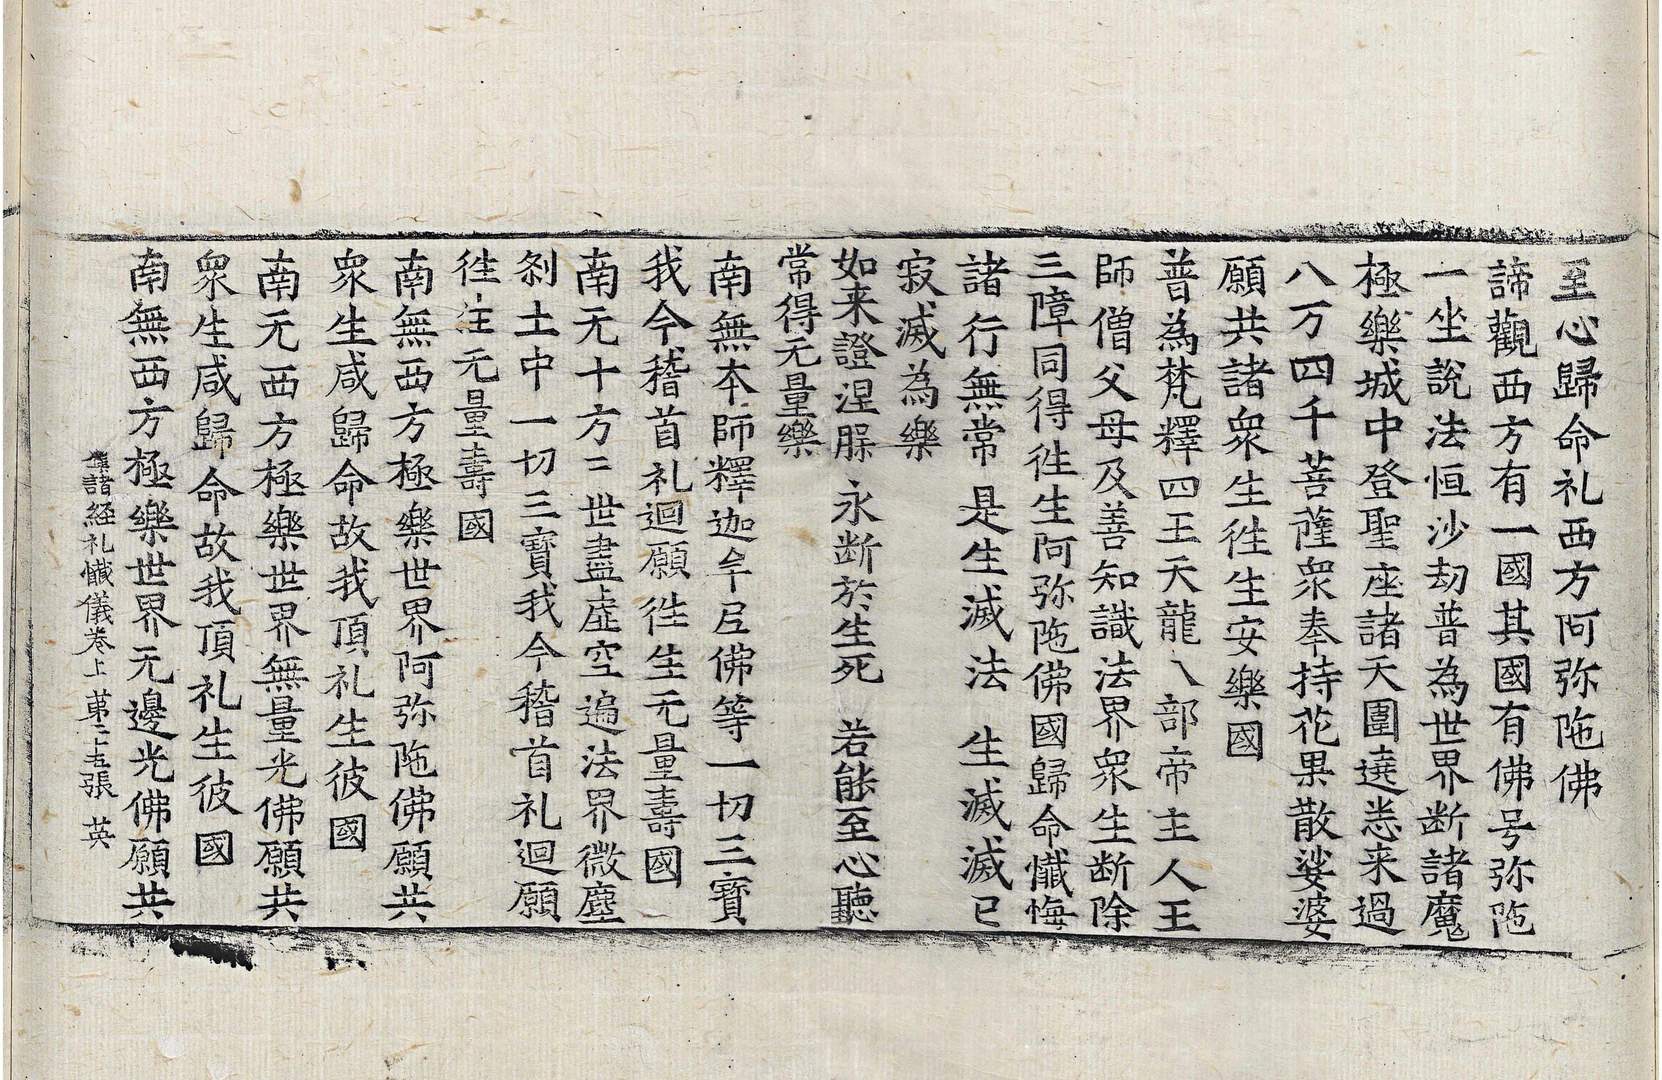 至心歸命礼西方阿弥陁佛
諦觀西方有一國其國有佛号弥陁
一坐說法恒沙劫普為世界断諸魔
極樂城中登聖座諸天圍遶悉来過
八万四千菩薩衆奉持花果散娑婆
願共諸衆生徃生安樂國
普為梵釋四王天龍八部帝主人王
師僧父母及善知識法界衆生断除
三障同得徃生阿弥陁佛國歸命懺悔
諸行無常 是生滅法 生滅滅已
寂滅為樂
如来證涅槃 永断於生死 若能至心聽
常得无量樂
南無本師釋迦牟尼佛等一切三寶
我今稽首礼迴願徃生无量壽國
南无十方三世盡虛空遍法界微塵
剎土中一切三寶我今稽首礼迴願
徃生无量壽國
南無西方極樂世界阿弥陁佛願共
衆生咸歸命故我頂礼生彼國
南无西方極樂世界無量光佛願共
衆生咸歸命故我頂礼生彼國
南無西方極樂世界无邊光佛願共
集諸經礼懺儀卷上 苐二十五張 英